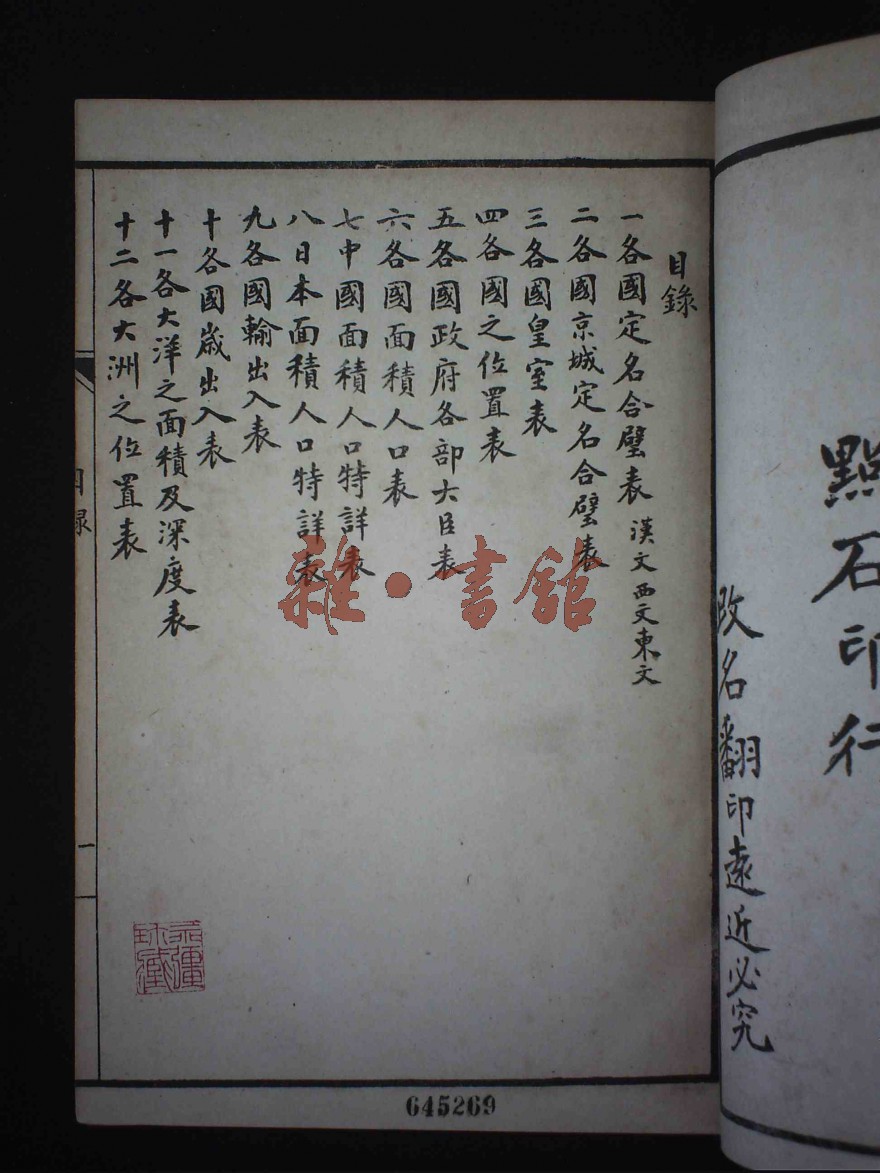 點石印行
改名翻印遠近必究
目錄
一各國定名合璧表 漢文西文東文
二各國京城定名合璧表
三各國皇室表
四各國之位置表
五各國政府各部大臣表
六各國面積人口表
七中國面積人口特詳表
八日本面積人口特詳表
九各國輸出入表
十各國歲出入表
十一各大洋之面積及深度表
十二各大洲之位置表
目錄
一
雜·書館
645269